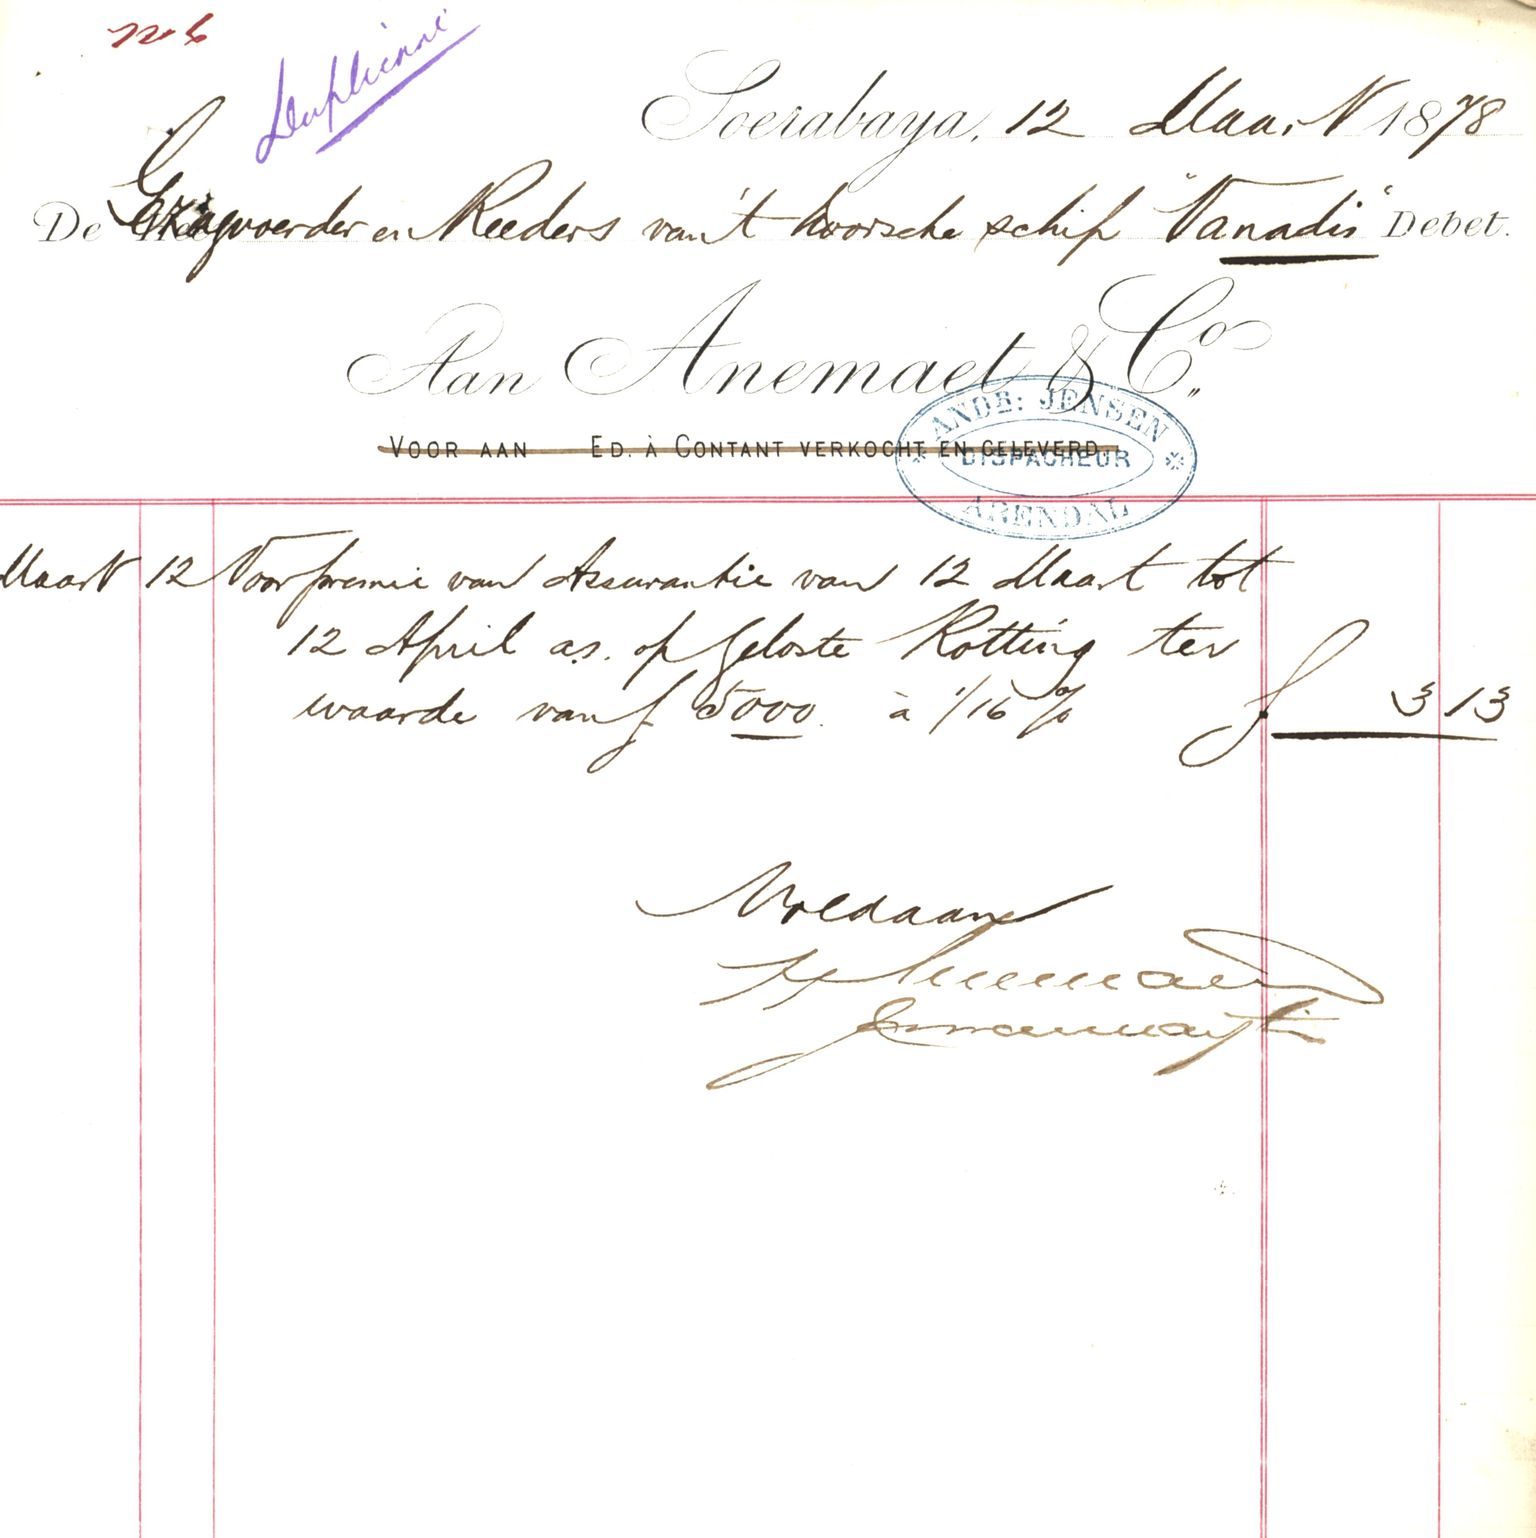 No 6
Soerabaya, 12 Maart 1878
De Gezagvoerder en Reeders van 't Noorsche schip "Vanadis" Debet.
Aan Anemaet & Co.
VOOR AAN ED. À CONTANT VERKOCHT EN GELEVERD.
ANDR: JENSEN
DISPACHEUR
ARENDAL
Maart 12 Voor premie van Assurantie van 12 Maart tot
12 April a.s. op geloste Rotting ter
waarde van f 5000. à 1/16 % f 3 13
Voldaan
Anemaet